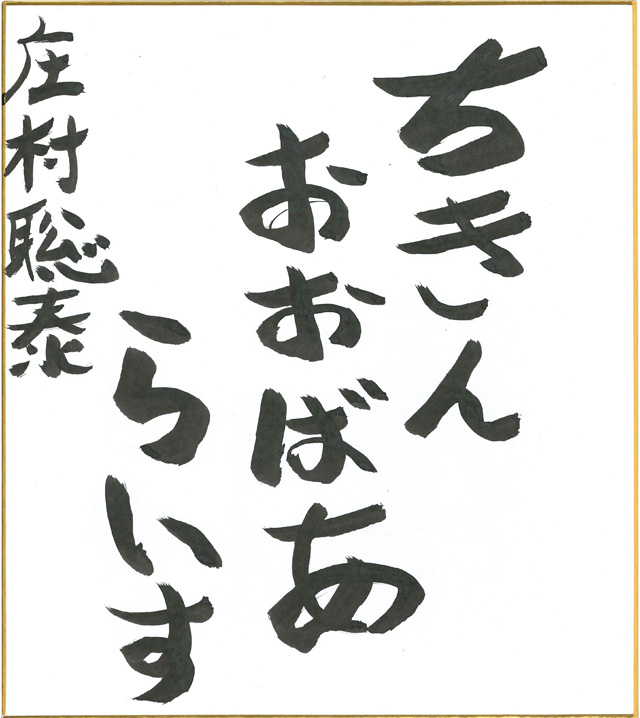 ちきん
おおばあ
らいす
庄村聡泰